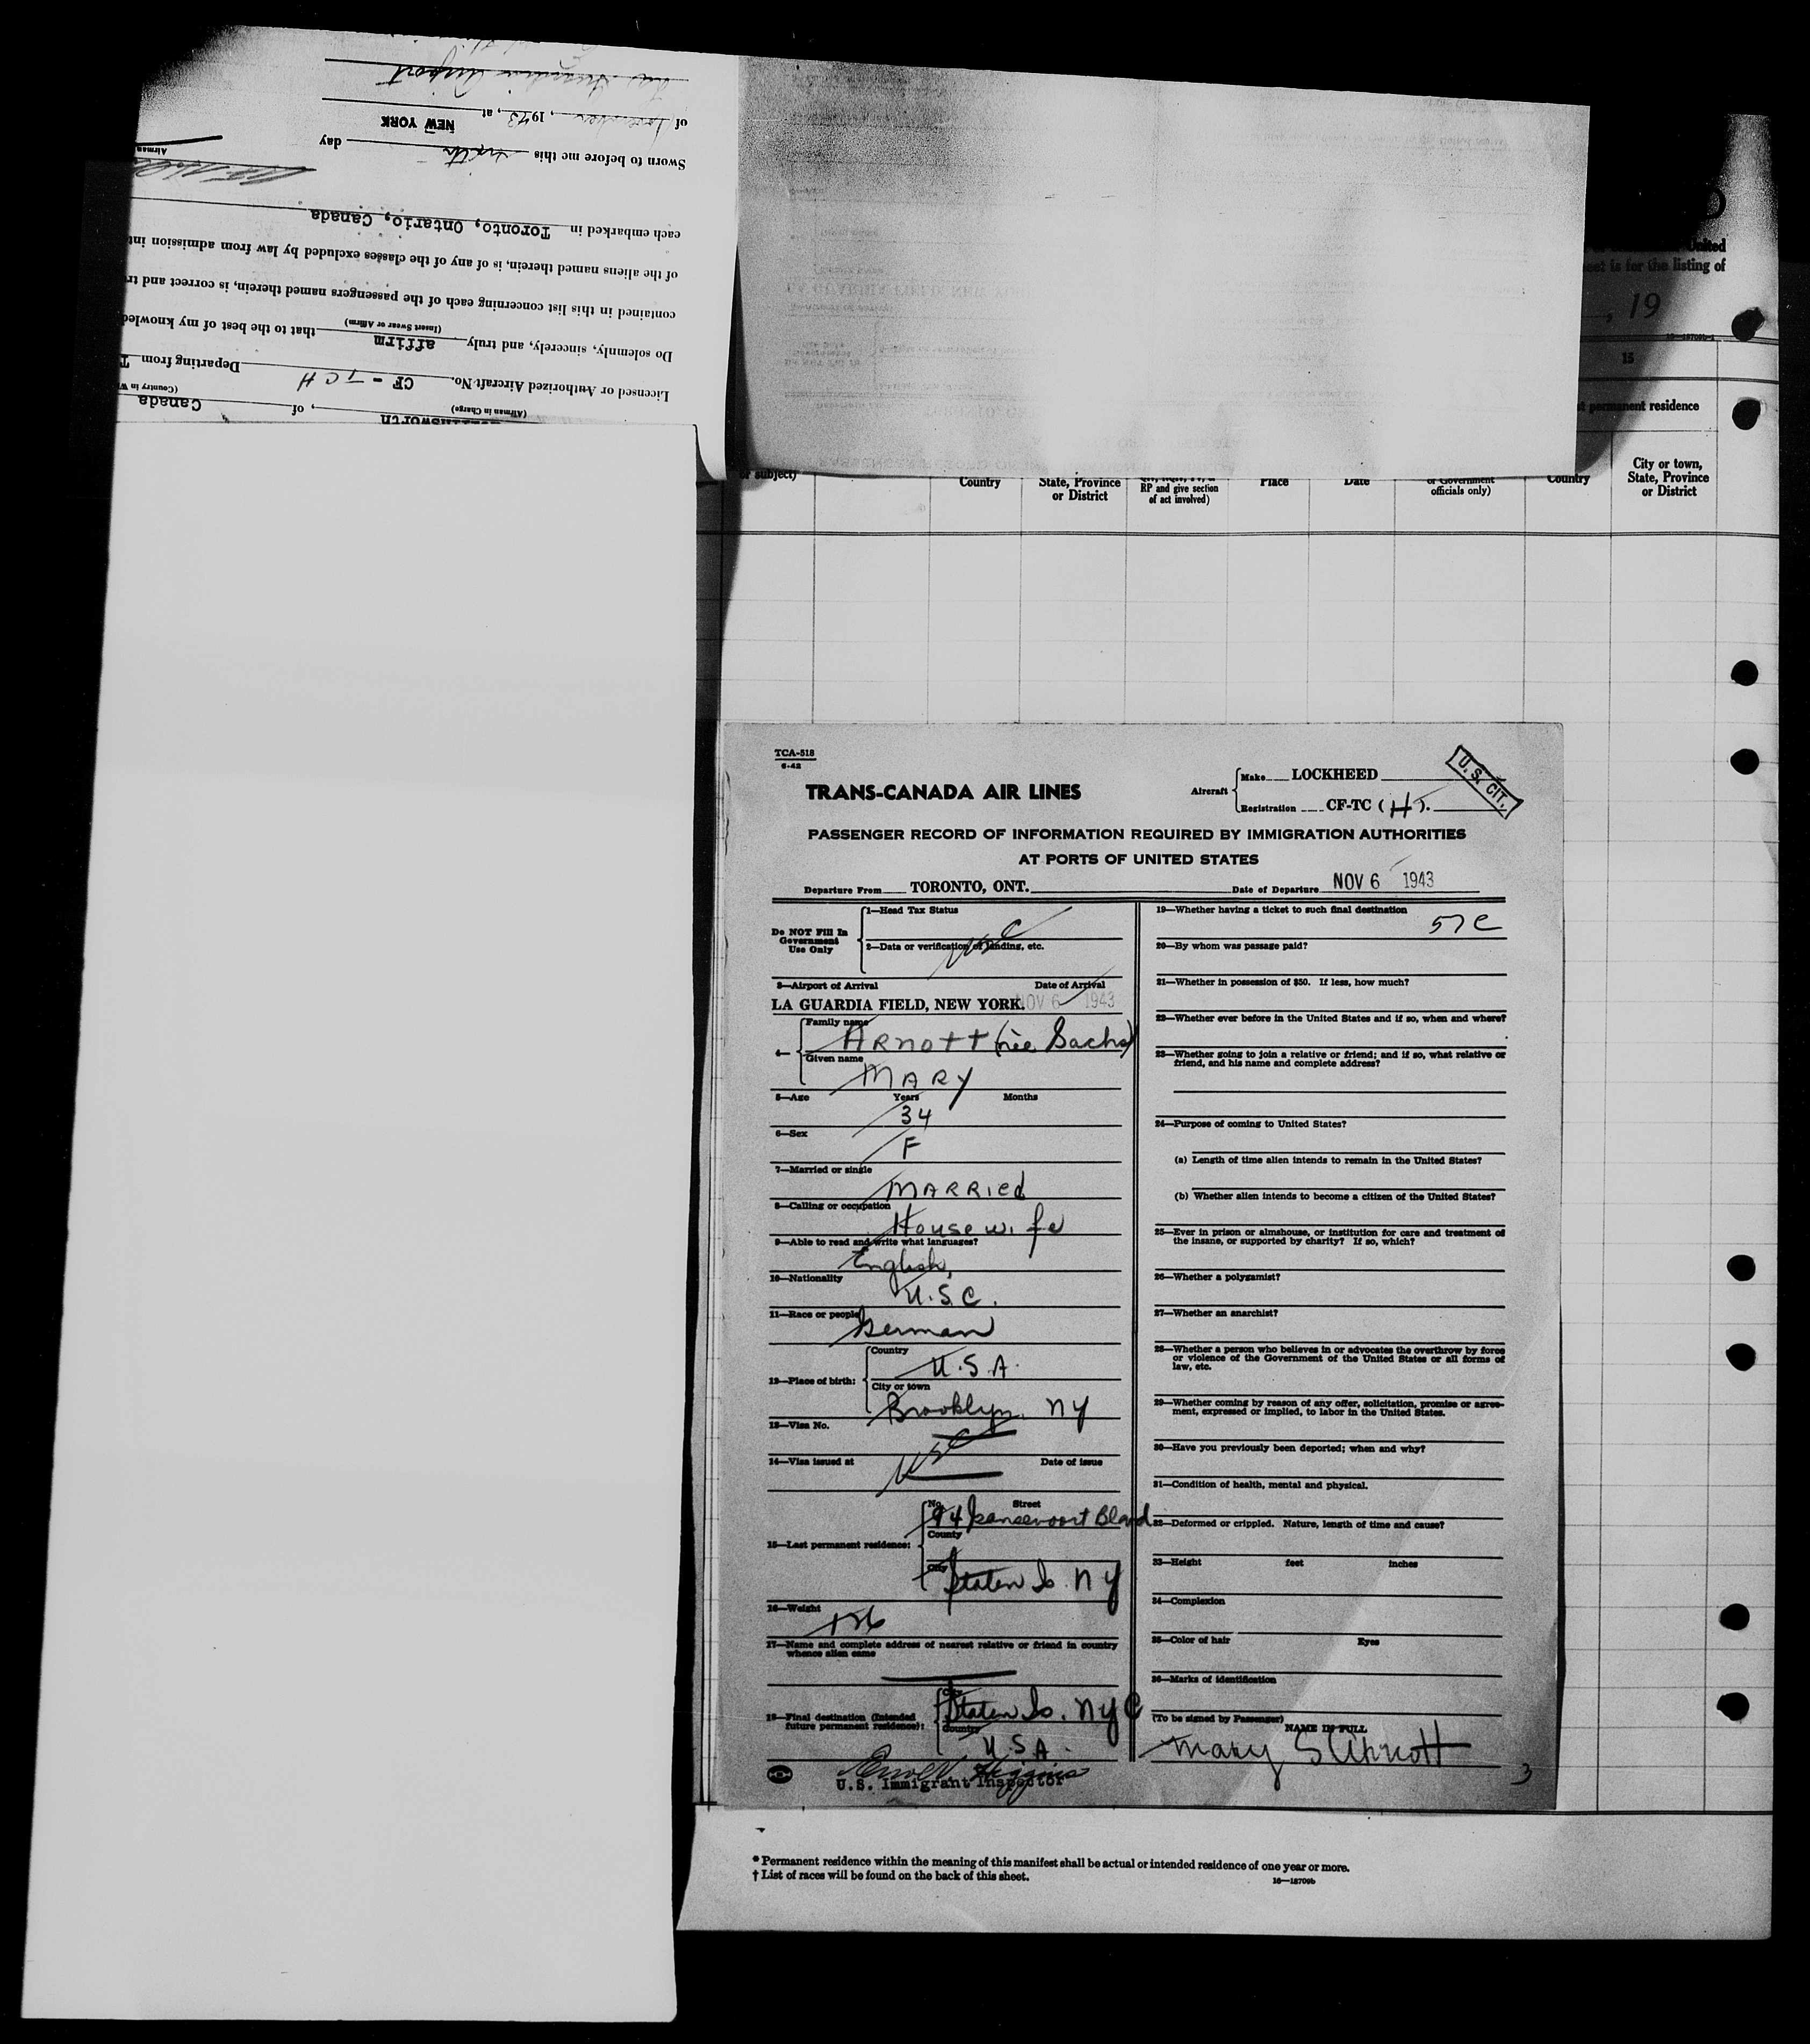 La Guardia Airport
of November, 1943, at NEW YORK
Sworn to before me this sixth day
Airman
each embarked in Toronto, Ontario, Canada
of the aliens named therein, is of any of the classes excluded by law from admission int
contained in this list concerning each of the passengers named therein, is correct and tr
Do solemnly, sincerely, and truly affirm that to the best of my knowled
(Insert Swear or Affirm)
Licensed or Authorized Aircraft No. CF - TCH Departing from T
(Airman in Charge) (Country in W
, of Canada
United
eet is for the listing of
, 19
16—18709b-1
15
t permanent residence
or subject)
Country
State, Province
or District
RP and give section
of act involved)
Place
Date
or Government
officials only)
Country
City or town,
State, Province
or District
TCA-518
6-42
TRANS-CANADA AIR LINES
Aircraft
Make LOCKHEED
Registration CF-TC (H).
U.S. CIT.
PASSENGER RECORD OF INFORMATION REQUIRED BY IMMIGRATION AUTHORITIES
AT PORTS OF UNITED STATES
Departure From TORONTO, ONT. Date of Departure NOV 6 1943
Do NOT Fill In
Government
Use Only
1—Head Tax Status
USC
2—Data or verification of landing, etc.
3—Airport of Arrival Date of Arrival
LA GUARDIA FIELD, NEW YORK. NOV 6 1943
4—
Family name
ARNOTT (née Sachs)
Given name
MARY
5—Age Years Months
34
6—Sex
F
7—Married or single
MARRIED
8—Calling or occupation
Housewife
9—Able to read and write what languages?
English,
10—Nationality
U.S.C.
11—Race or people
German
12—Place of birth:
Country
U.S.A.
City or town
Brooklyn, NY
13—Visa No.
USC
14—Visa issued at Date of issue
15—Last permanent residence:
No. Street
94 Gansevoort Blavd
County
City
Staten Is. NY
16—Weight
17—Name and complete address of nearest relative or friend in country
whence alien came
18—Final destination (Intended
future permanent residence):
City
Staten Is. NYC
Country
U.S.A.
U.S. Immigrant Inspector
19—Whether having a ticket to such final destination
20—By whom was passage paid?
21—Whether in possession of $50. If less, how much?
22—Whether ever before in the United States and if so, when and where?
23—Whether going to join a relative or friend; and if so, what relative or
friend, and his name and complete address?
24—Purpose of coming to United States?
(a) Length of time alien intends to remain in the United States?
(b) Whether alien intends to become a citizen of the United States?
25—Ever in prison or almshouse, or institution for care and treatment of
the insane, or supported by charity? If so, which?
26—Whether a polygamist?
27—Whether an anarchist?
28—Whether a person who believes in or advocates the overthrow by force
or violence of the Government of the United States or all forms of
law, etc.
29—Whether coming by reason of any offer, solicitation, promise or agree-
ment, expressed or implied, to labor in the United States.
30—Have you previously been deported; when and why?
31—Condition of health, mental and physical.
32—Deformed or crippled. Nature, length of time and cause?
33—Height feet inches
34—Complexion
35—Color of hair Eyes
36—Marks of identification
(To be signed by Passenger)
NAME IN FULL
Mary S Arnott
3
* Permanent residence within the meaning of this manifest shall be actual or intended residence of one year or more.
† List of races will be found on the back of this sheet.
16—18709b